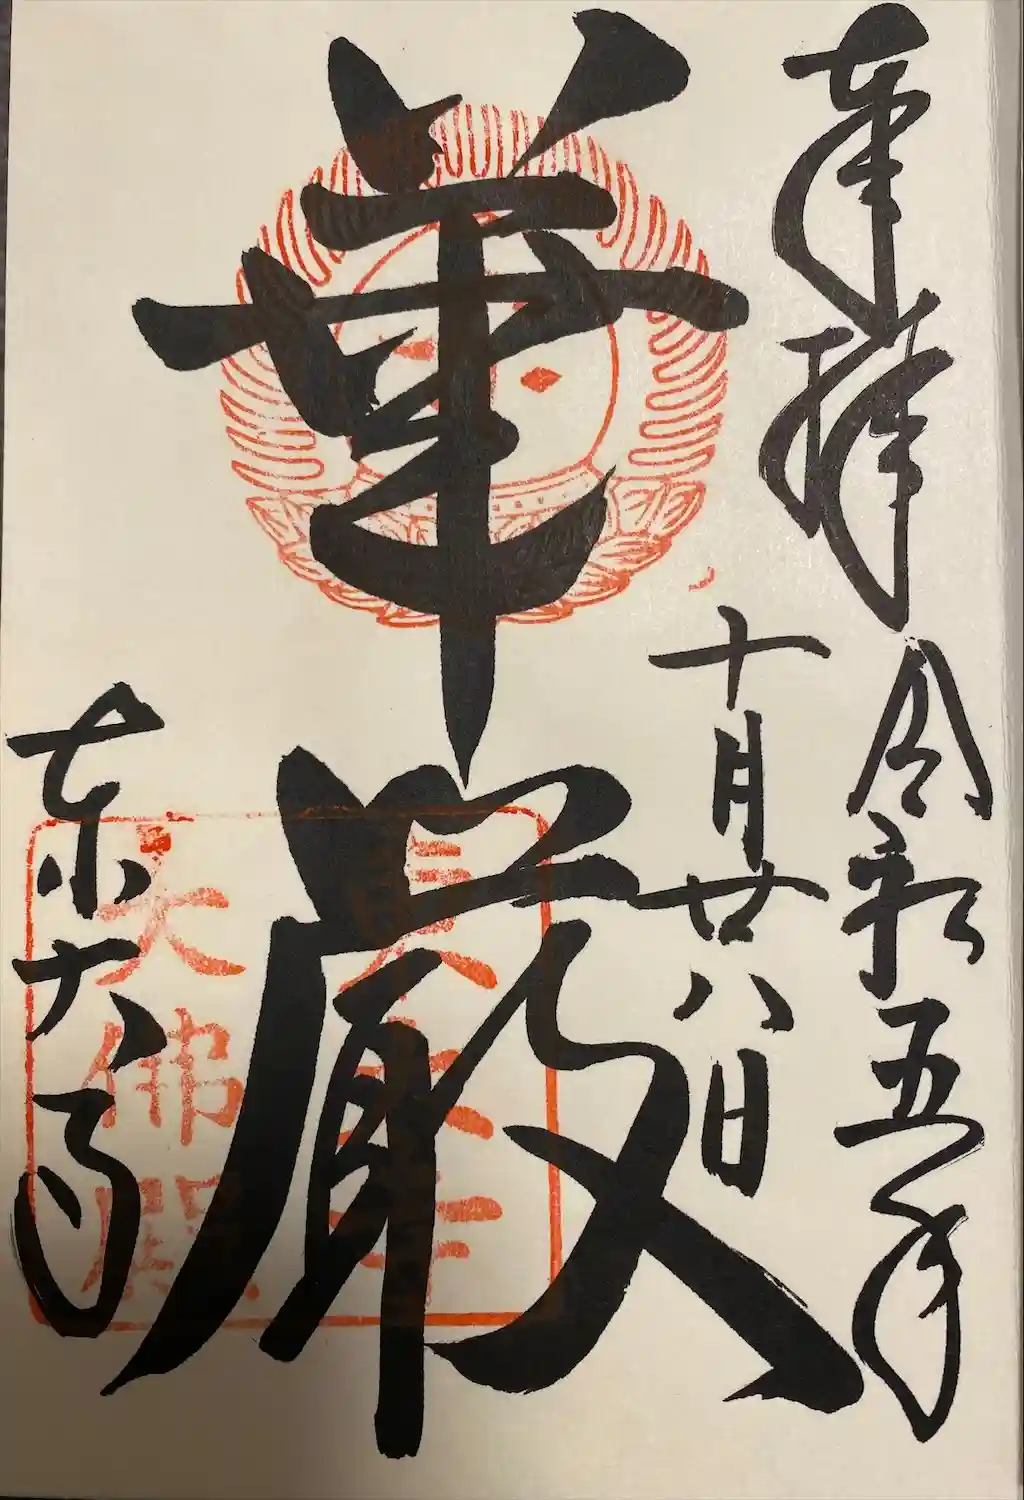 奉拝
令和五年
十月廿八日
華厳
東大寺
大佛殿